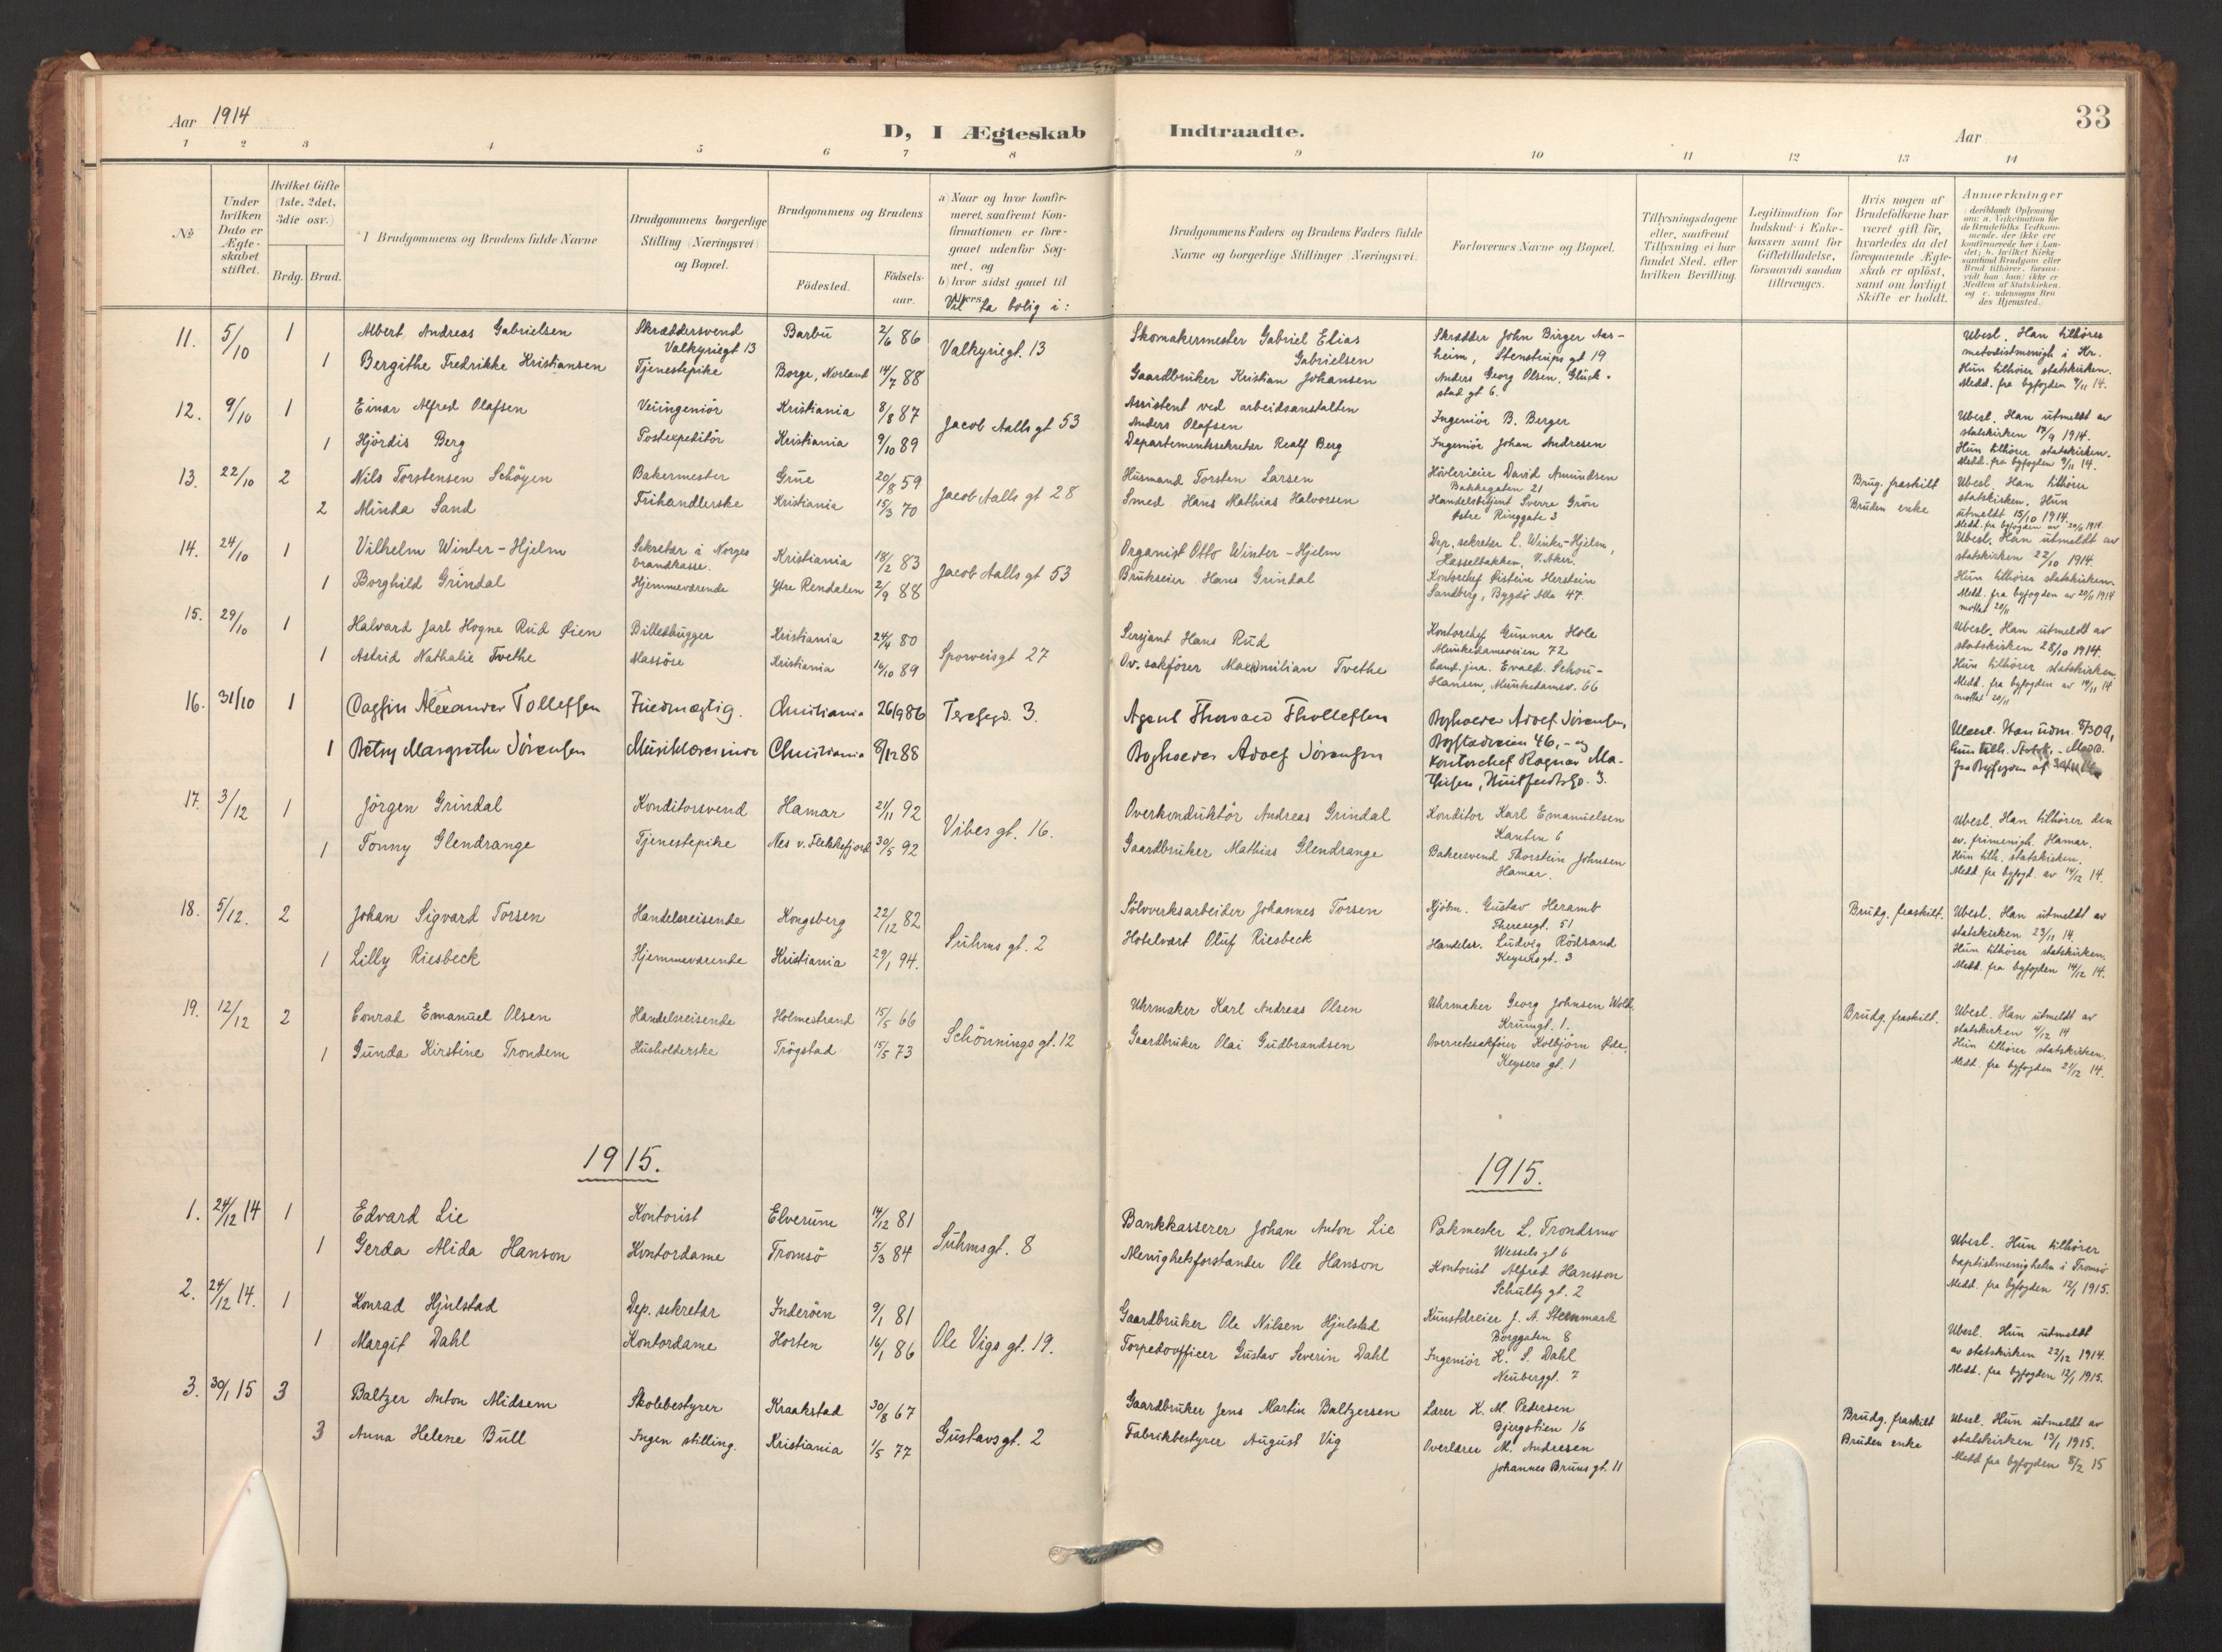 Aar 1914
D, I Ægteskab Indtraadte.
Aar
33
1 2 3 4 5 6 7 8 9 10 11 12 13 14
No
Under hvilken Dato er Ægteskabet stiftet.
Hvilket Gifte (1ste, 2det, 3die osv.)
Brdg. Brud.
Brudgommens og Brudens fulde Navne
Brudgommens borgerlige Stilling (Næringsvei) og Bopæl.
Brudgommens og Brudens
Fødested.
Fødsels-aar.
a) Naar og hvor konfir-
meret, saafremt Kon-
firmationen er fore-
gaaet udenfor Sog-
net, og
b) hvor sidst gaaet til
Alters.
Vil ta bolig i:
Brudgommens Faders og Brudens Faders fulde
Navne og borgerlige Stillinger (Næringsvei).
Forlovernes Navne og Bopæl.
Tillysningsdagene
eller, saafremt
Tillysning ei har
fundet Sted, efter
hvilken Bevilling.
Legitimation for
Indskud i Enke-
kassen samt for
Giftetilladelse,
forsaavidt saadan
tiltrænges.
Hvis nogen af
Brudefolkene har
været gift før,
hvorledes da det
foregaaende Ægte-
skab er opløst,
samt om lovligt
Skifte er holdt.
Anmærkninger
11. 5/10 1 Albert Andreas Gabrielsen Skræddersvend Valkyriegt 13 Barbu 2/6 86 Valkyriegt. 13 Skomakermester Gabriel Elias Gabrielsen Skrædder John Birger Aas-
heim, Stenstrups gt 19
Ubesl. Han tilhører
metodistmenigh i Kr.
Hun tilhører statskirken.
Medd. fra byfogden 9/11 14.
1 Bergithe Fredrikke Kristiansen Tjenestepike Borge, Norland 14/7 88 Gaardbruker Kristian Johansen Anders Georg Olsen, Glück-
stad gt 6.
12. 9/10 1 Einar Alfred Olafsen Veiingeniør Kristiania 8/8 87 Jacob Aalls gt 53 Assistent ved arbeidsanstalten
Anders Olafsen Ingeniør B. Berger
Ubesl. Han utmeldt av
statskirken 19/9 1914.
Hun tilhører statskirken.
Medd. fra byfogden 9/11 14.
1 Hjördis Berg Postexpeditør Kristiania 9/10 89 Departementssekretær Realf Berg Ingeniør Johan Andresen
13. 22/10 2 Nils Torstensen Schöyen Bakermester Grue 20/8 59 Jacob Aalls gt 28 Husmand Torsten Larsen Hövlerieier David Amundsen
Bakkegaten 21
Brug. fraskilt
Ubesl. Han tilhører
statskirken. Hun
utmeldt 15/10 1914.
Medd. fra byfogden av 20/11 1914.
2 Minda Sand Frihandlerske Kristiania 15/3 70 Smed Hans Mathias Halvorsen Handelsbetjent Sverre Grön
Østre Ringgate 3
Bruden enke
14. 24/10 1 Vilhelm Winter-Hjelm Sekretær i Norges
brandkasse. Kristiania 18/2 83 Jacob Aalls gt 53 Organist Otto Winter-Hjelm Dep. sekretær L. Winter-Hjelm,
Hasselbakken, V. Aker.
Ubesl. Han utmeldt av
statskirken 22/10 1914.
Hun tilhører statskirken.
Medd. fra byfogden av 20/11 1914
mottat 20/11
1 Borghild Grindal Hjemmeværende Ytre Rendalen 2/9 88 Brukseier Hans Grindal Kontorchef Øistein Herstein
Sandberg, Bygdø Alle 47.
15. 29/10 1 Halvard Jarl Hogne Rud Øien Billedhugger Kristiania 24/4 80 Sporveisgt 27 Serjant Hans Rud Kontorchef Gunnar Hole
Munkedamsveien 72
Ubesl. Han utmeldt av
statskirken 28/10 1914.
Hun tilhører statskirken.
Medd. fra byfogden av 14/11 14
mottat 20/11
1 Astrid Nathalie Tvethe Massöse Kristiania 16/10 89 Ov. sakfører Maximilian Tvethe Cand. jur. Evald Schou-
Hansen, Munkedamsv. 66
16. 31/10 1 Dagfin Alexander Tollefsen Christiania 26/9 86 Teresegd. 3. Agent Thorvald Thollefsen Bogholder Adolf Sörensen,
Bogstadveien 46, - og
Kontorchef Ragnar Ma-
thisen, Huitfeldtsgd. 3.
Ubesl. Han udm.
Hun tilh. Statsk. - Medd.
fra Byfogden af
1 Betsy Margrethe Sörensen Musiklærerinde Christiania 8/12 88 Bogholder Adolf Sörensen
17. 3/12 1 Jörgen Grindal Konditorsvend Hamar 21/11 92 Vibes gt. 16. Overkonduktör Andreas Grindal Konditor Karl Emanuelsen
Kanten 6
Ubesl. Han tilhører den
ev. frimenigh. Hamar.
Hun tilh. statskirken.
Medd. fra byfogd. av 14/12 14.
1 Tonny Glendrange Tjenestepike Nes v. Flekkefjord 30/5 92 Gaardbruker Mathias Glendrange Bakersvend Thorstein Johnsen
Hamar.
18. 5/12. 2 Johan Sigvard Torsen Handelsreisende Kongsberg 22/12 82 Suhms gt. 2 Sölvverksarbeider Johannes Torsen Kjöbm. Gustav Heramb
Theresegt. 51
Brudg. fraskilt.
Ubesl. Han utmeldt av
statskirken 23/11 14.
Hun tilhører statskirken.
Medd. fra byfogden 14/12 14.
1 Lilly Riesbeck Hjemmeværende Kristiania 29/1 94. Hotelvært Oluf Riesbeck Handelsr. Ludvig Rödsand
Keysers gt. 3
19. 12/12 2 Conrad Emanuel Olsen Handelsreisende Holmestrand 15/5 66 Schönnings gt. 12 Uhrmaker Karl Andreas Olsen Uhrmaker Georg Johnsen Wold.
Krumgt. 1.
Brudg. fraskilt.
Ubesl. Han utmeldt av
statskirken 4/12 14
Hun tilhører statskirken.
Medd. fra byfogden 21/12 14.
1 Gunda Kirstine Trondem Husholderske Trögstad 15/5 73 Gaardbruker Olai Gudbrandsen Overretssakfører Kolbjörn Øde,
Keysers gt. 1
1915. 1915.
1. 24/12 14 1 Edvard Lie Kontorist Elverum 14/12 81 Suhmsgt. 8 Bankkasserer Johan Anton Lie Pakmester L. Trondsmo
Wessels gt 6
Ubesl. Hun tilhører
baptistmenigheten i Tromsö
Medd. fra byfogden 12/1 1915.
1 Gerda Alida Hanson Kontordame Tromsö 5/3 84 Menighetsforstander Ole Hanson Kontorist Alfred Hansson
Schultz gt. 2
2. 24/12 14. 1 Konrad Hjulstad Dep. sekretær Inderöen 9/1 81 Ole Vigs gt. 19. Gaardbruker Ole Nilsen Hjulstad Kunstdreier J. A. Steenmark
Borggaten 8
Ubesl. Hun utmeldt
av statskirken 22/12 1914.
Medd. fra byfogden 12/1 1915.
1 Margit Dahl Kontordame Horten 16/1 86 Torpedoofficer Gustav Severin Dahl Ingeniör K. S. Dahl
Neuberggt. 7
3. 30/1 15 3 Baltzer Anton Midsem Skolebestyrer Kraakstad 30/8 67 Gustavs gt. 2 Gaardbruker Jens Martin Baltzersen Lærer K. M. Petersen
Bjergstien 16
Brudg. fraskilt
Ubesl. Hun utmeldt av
statskirken 13/1 1915.
Medd fra byfogden 8/2 15
3 Anna Helene Bull Ingen stilling. Kristiania 1/5 77 Fabrikbestyrer August Vig Overlærer M. Andresen
Johannes Bruns gt. 11
Bruden enke